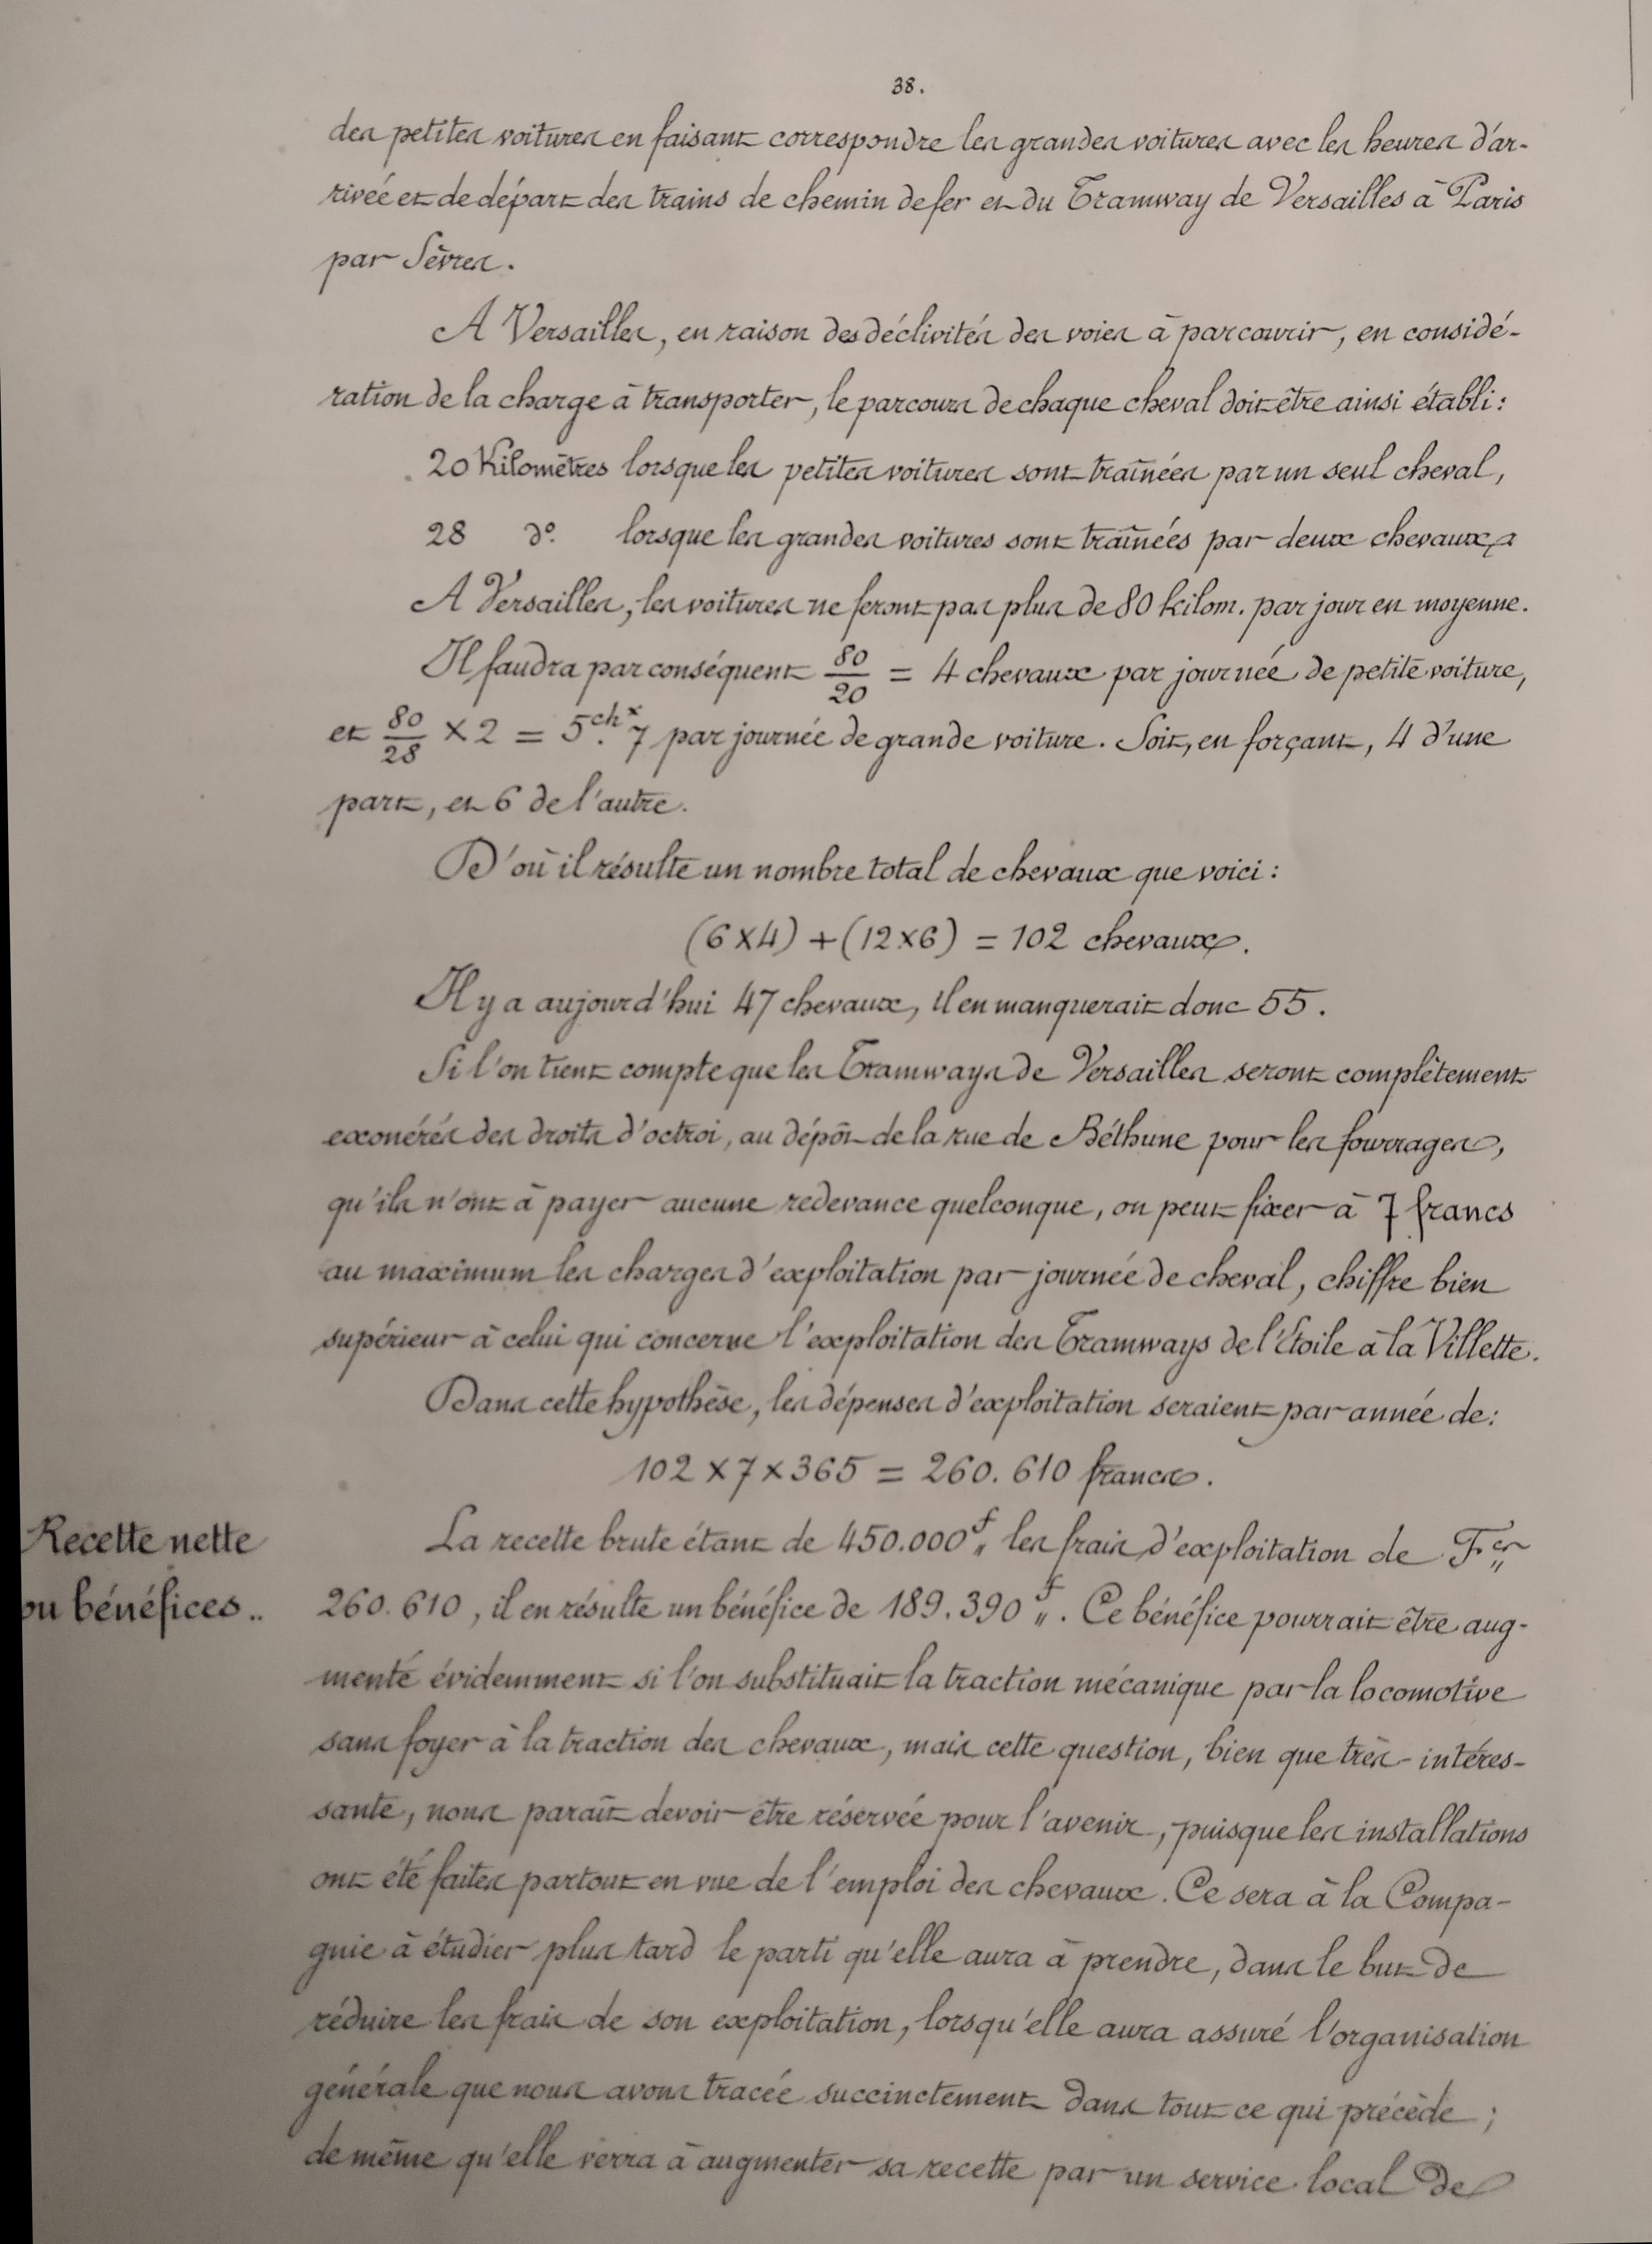 38.
des petites voitures en faisant correspondre les grandes voitures avec les heures d'ar-
rivée et de départ des trains de chemin de fer et du Tramway de Versailles à Paris
par Sèvres.
A Versailles, en raison des déclivités des voies à parcourir, en considé-
ration de la charge à transporter, le parcours de chaque cheval doit être ainsi établi:
20 Kilomètres lorsque les petites voitures sont traînées par un seul cheval,
28 d°. lorsque les grandes voitures sont traînées par deux chevaux.
A Versailles, les voitures ne feront pas plus de 80 kilom. par jour en moyenne.
Il faudra par conséquent 80/20 = 4 chevaux par journée de petite voiture,
et 80/28 × 2 = 5ch.x 7 par journée de grande voiture. Soit, en forçant, 4 d'une
part, et 6 de l'autre.
D'où il résulte un nombre total de chevaux que voici:
(6×4) + (12×6) = 102 chevaux.
Il y a aujourd'hui 47 chevaux, il en manquerait donc 55.
Si l'on tient compte que les Tramways de Versailles seront complètement
exonérés des droits d'octroi, au dépôt de la rue de Béthune pour les fourrages,
qu'ils n'ont à payer aucune redevance quelconque, on peut fixer à 7 francs
au maximum les charges d'exploitation par journée de cheval, chiffre bien
supérieur à celui qui concerne l'exploitation des Tramways de l'Étoile à la Villette.
Dans cette hypothèse, les dépenses d'exploitation seraient par année de:
102 × 7 × 365 = 260.610 francs.
Recette nette
ou bénéfices..
La recette brute étant de 450.000f" les frais d'exploitation de Fcs"
260.610, il en résulte un bénéfice de 189.390f". Ce bénéfice pourrait être aug-
menté évidemment si l'on substituait la traction mécanique par la locomotive
sans foyer à la traction des chevaux, mais cette question, bien que très-intéres-
sante, nous paraît devoir être réservée pour l'avenir, puisque les installations
ont été faites partout en vue de l'emploi des chevaux. Ce sera à la Compa-
gnie à étudier plus tard le parti qu'elle aura à prendre, dans le but de
réduire les frais de son exploitation, lorsqu'elle aura assuré l'organisation
générale que nous avons tracée succinctement dans tout ce qui précède;
de même qu'elle verra à augmenter sa recette par un service local de